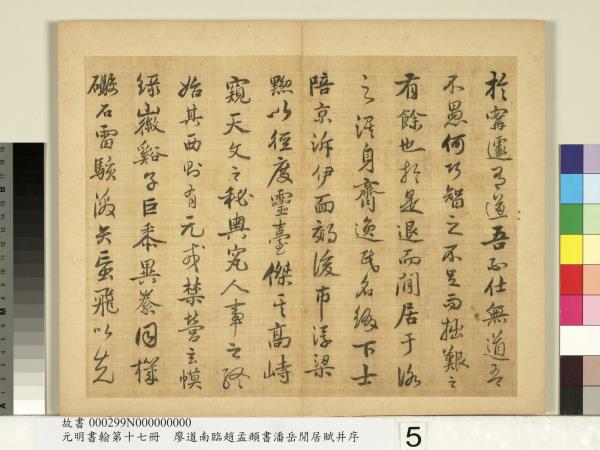 於寗蘧有道吾不仕無道吾
不愚何巧智之不足而拙艱之
有餘也於是退而閒居于洛
之涘身齊逸民名綴下士
陪京泝伊面郊後市浮梁
黝以徑度靈臺傑其高峙
窺天文之秘奧究人事之終
始其西則有元戎禁營玄幙
綠徽谿子巨黍異絭同機
礮石雷駭激矢蝱飛以先
故書 000299N000000000
元明書翰第十七冊 廖道南臨趙孟頫書潘岳閒居賦并序
5